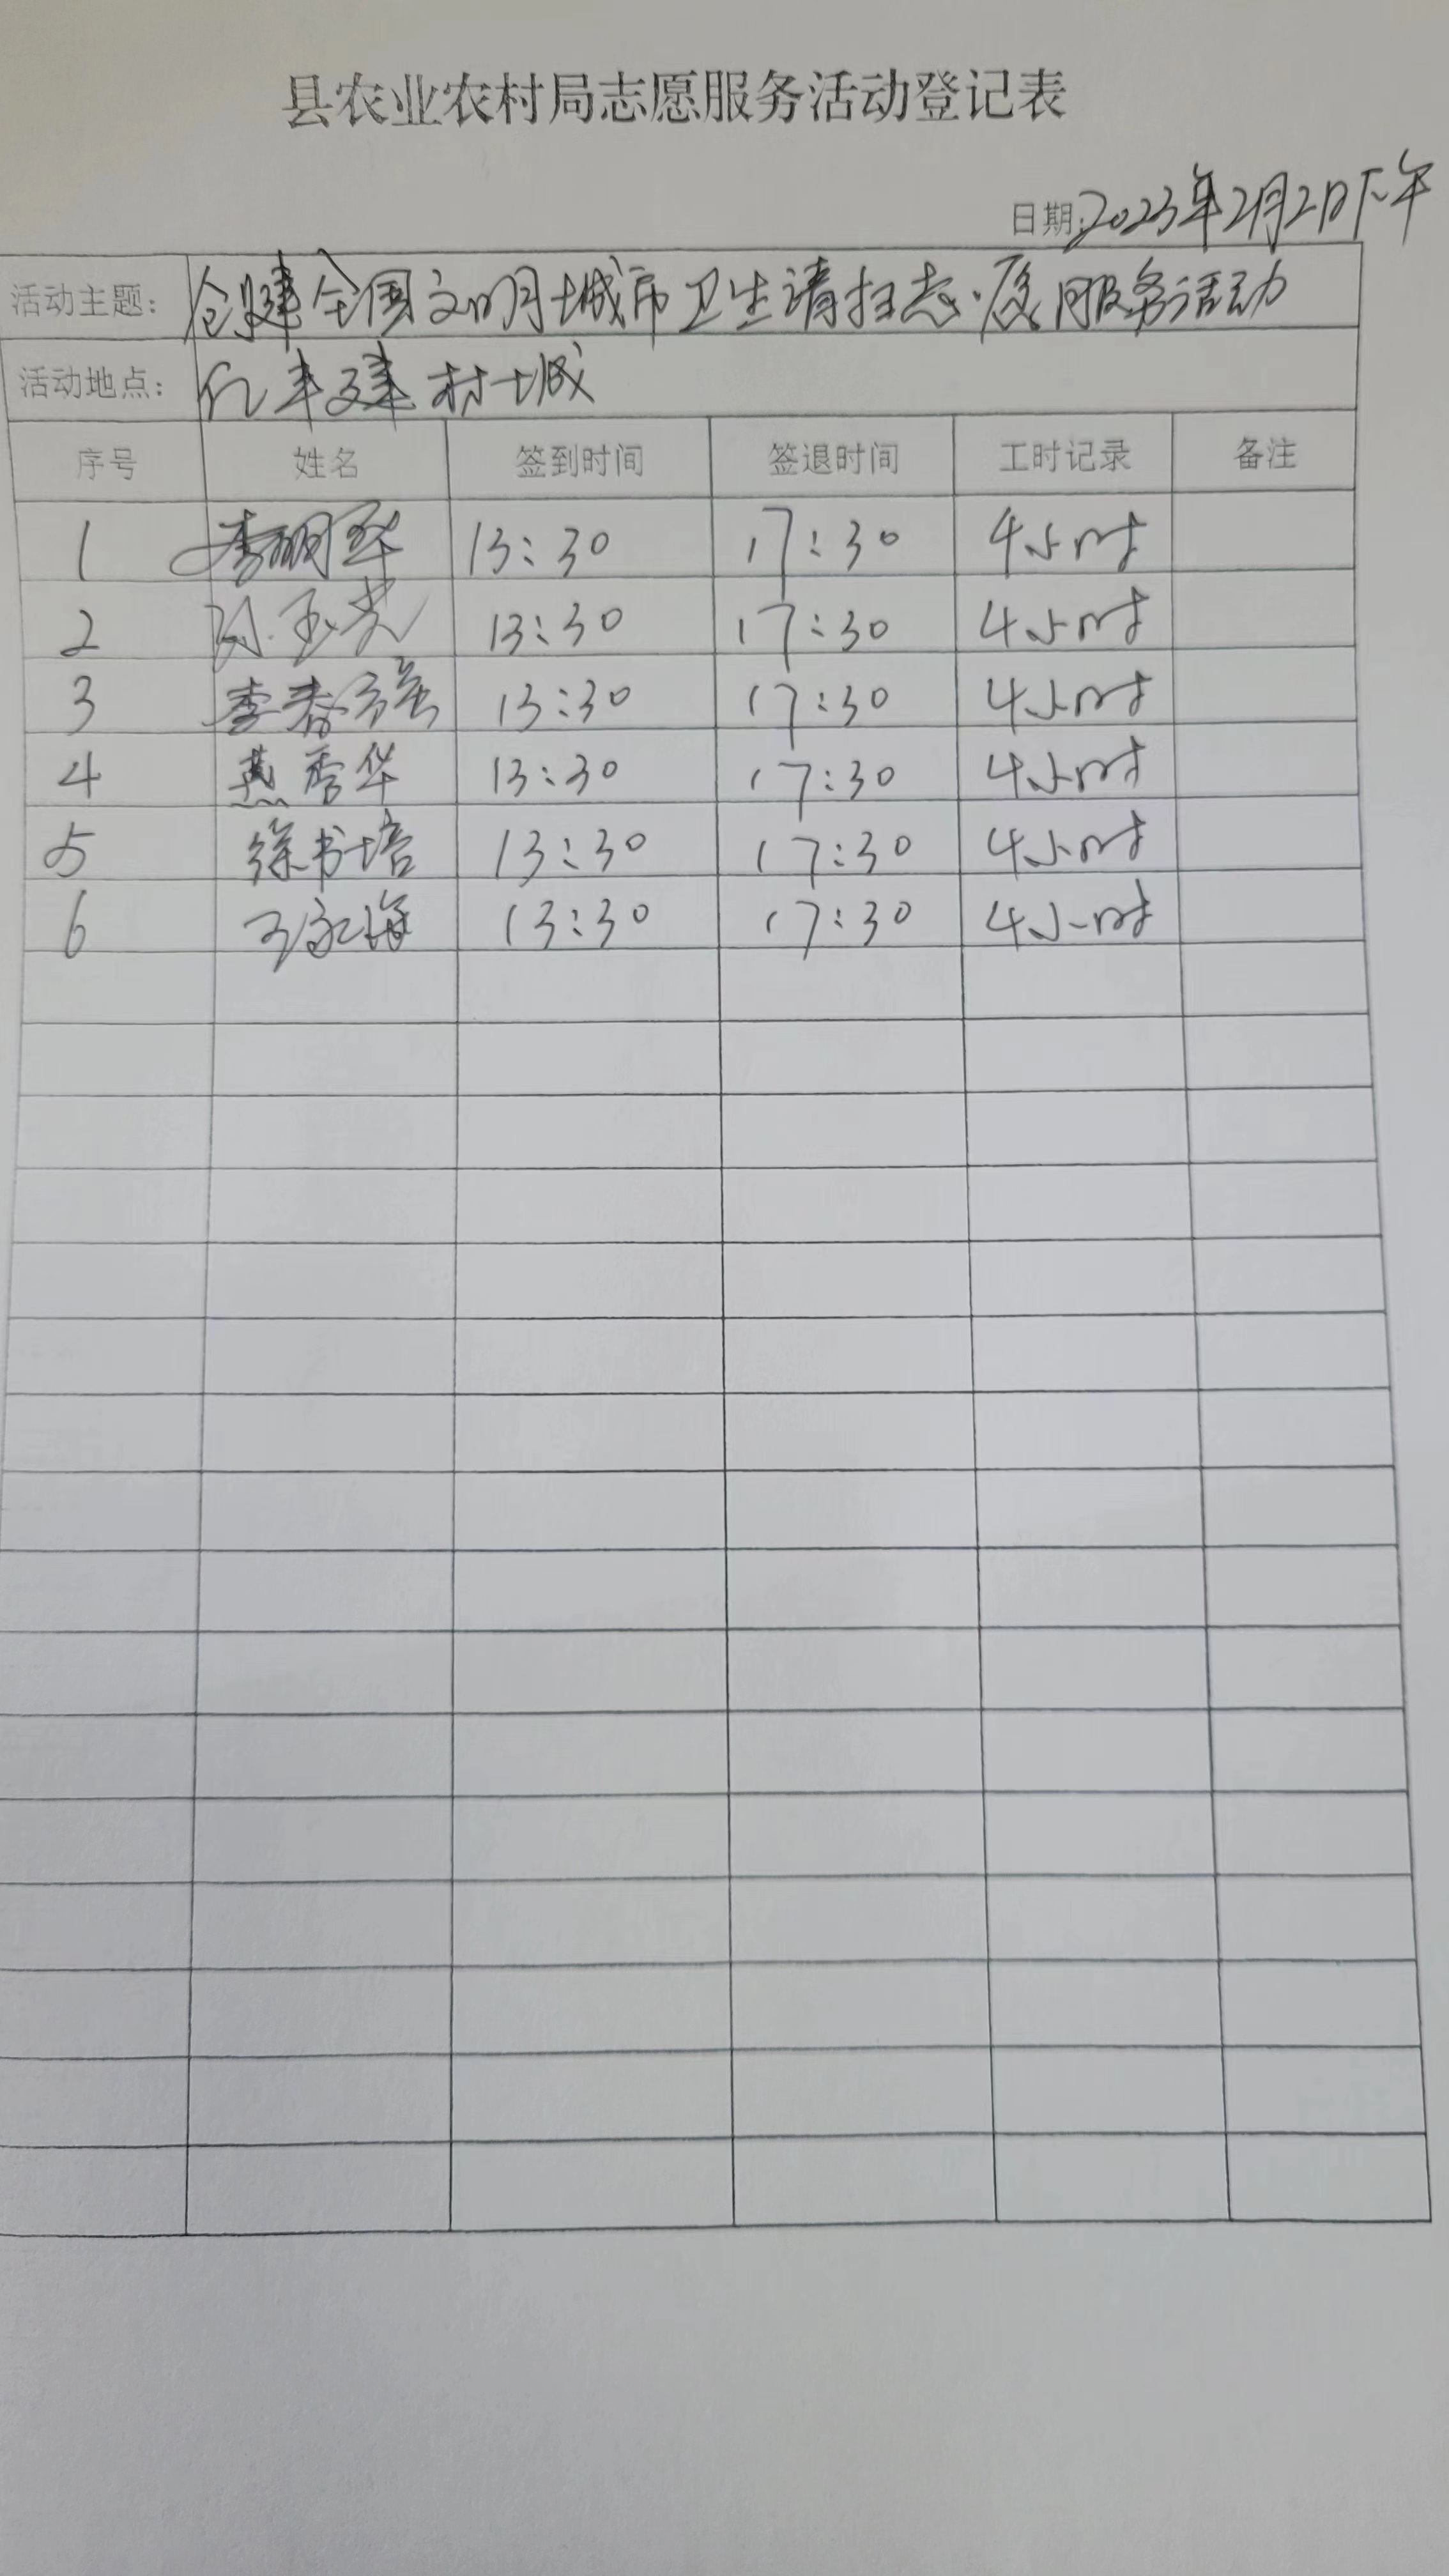 县农业农村局志愿服务活动登记表
日期:2023年2月2日下午
活动主题: 创建全国文明城市卫生请扫志愿服务活动
活动地点: 亿丰建材城
序号 姓名 签到时间 签退时间 工时记录 备注
1 李明华 13:30 17:30 4小时
2 13:30 17:30 4小时
3 李春 13:30 17:30 4小时
4 燕秀华 13:30 17:30 4小时
5 徐书培 13:30 17:30 4小时
6 王永海 13:30 17:30 4小时